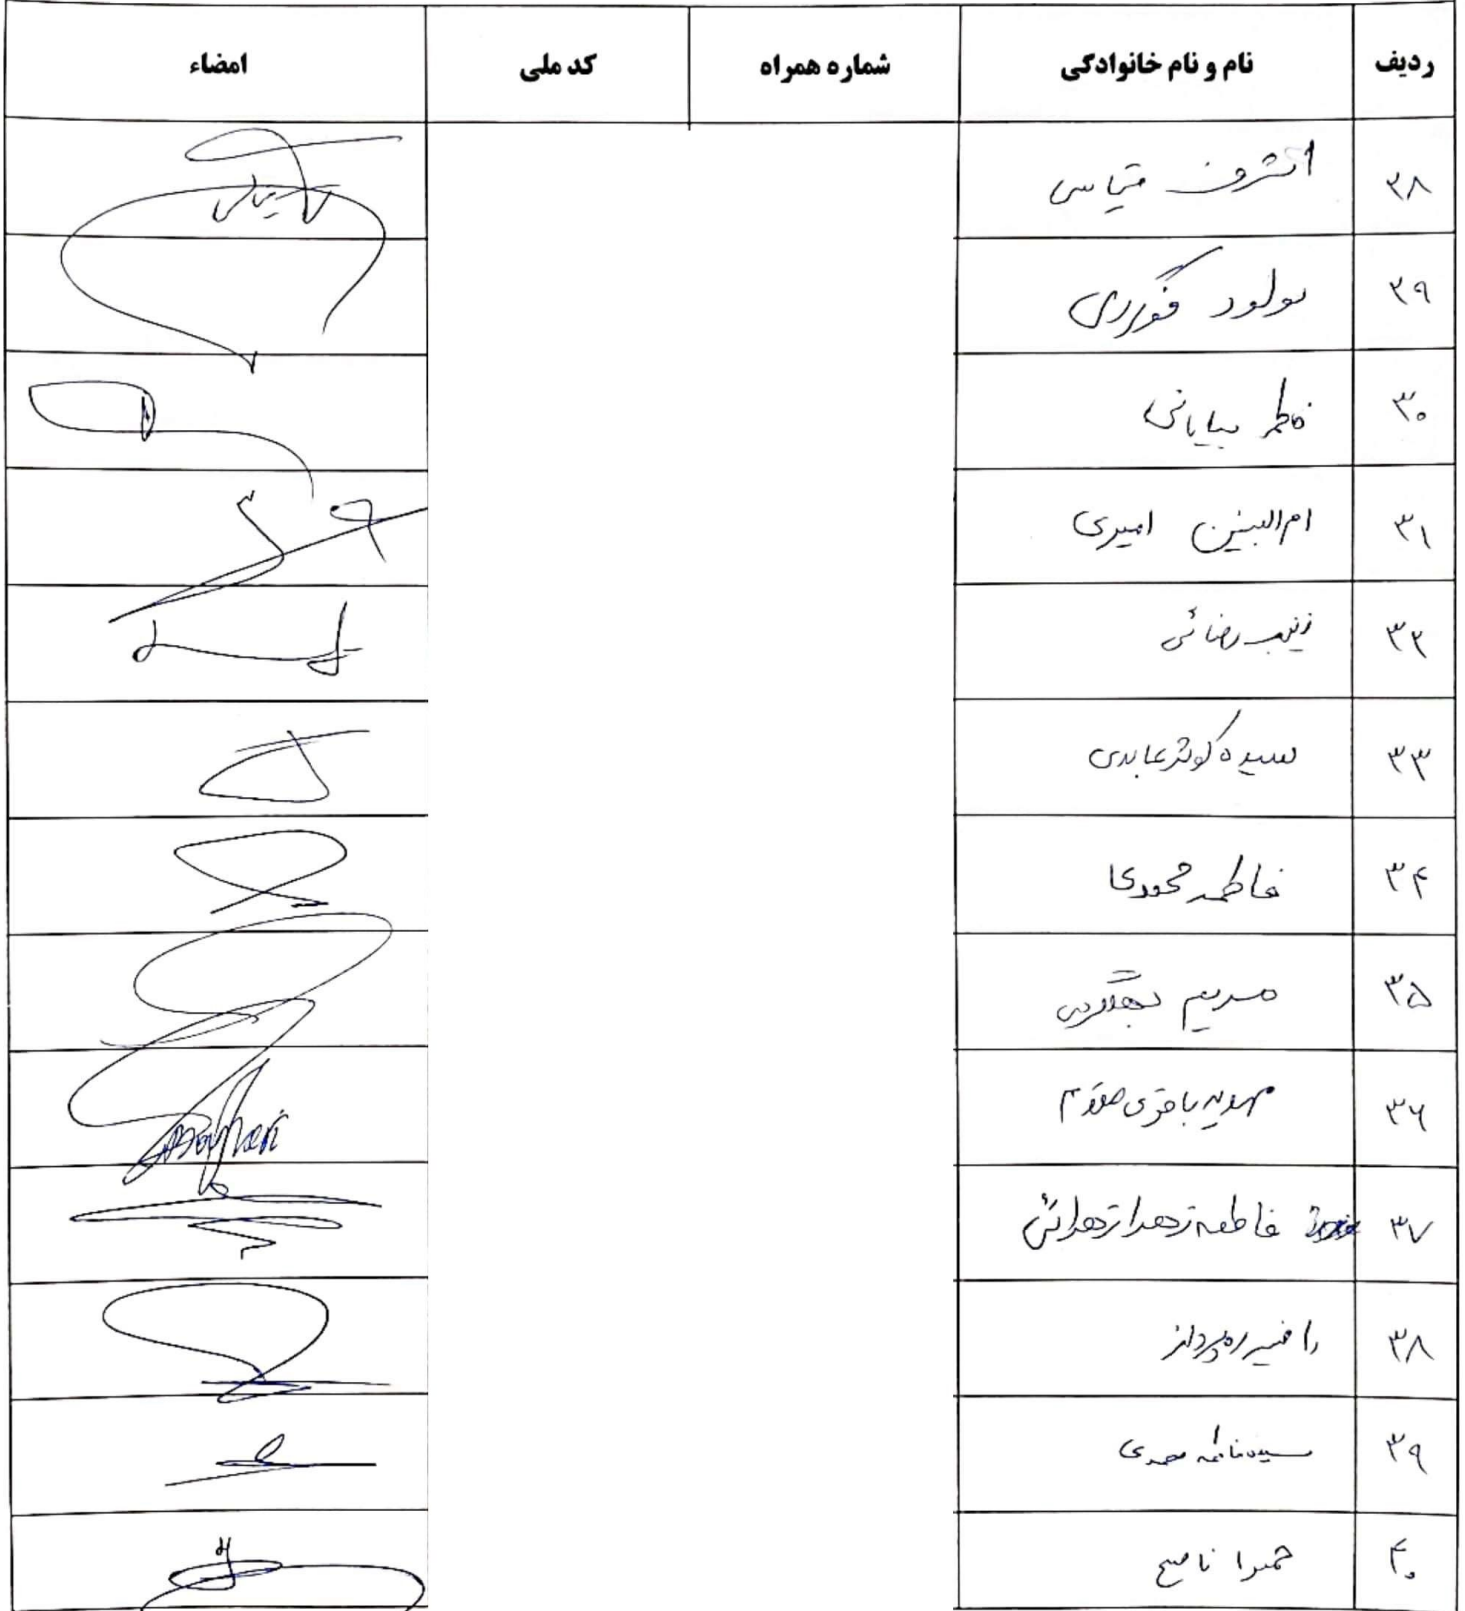 ردیف نام و نام خانوادگی شماره همراه کد ملی امضاء
۲۸ اشرف قیاسی
۲۹ مولود
۳۰ فاطمه بیابانی
۳۱ ام البنین امیری
۳۲ زینب رضائی
۳۳ سیده کوثر عابدی
۳۴ فاطمه محمودی
۳۵ مریم
۳۶ مهدیه باقری مقدم
۳۷ فاطمه زهرا زهرائی
۳۸ راضیه ره پرداز
۳۹ سیده فاطمه محمدی
۴۰ حمیرا ناصح